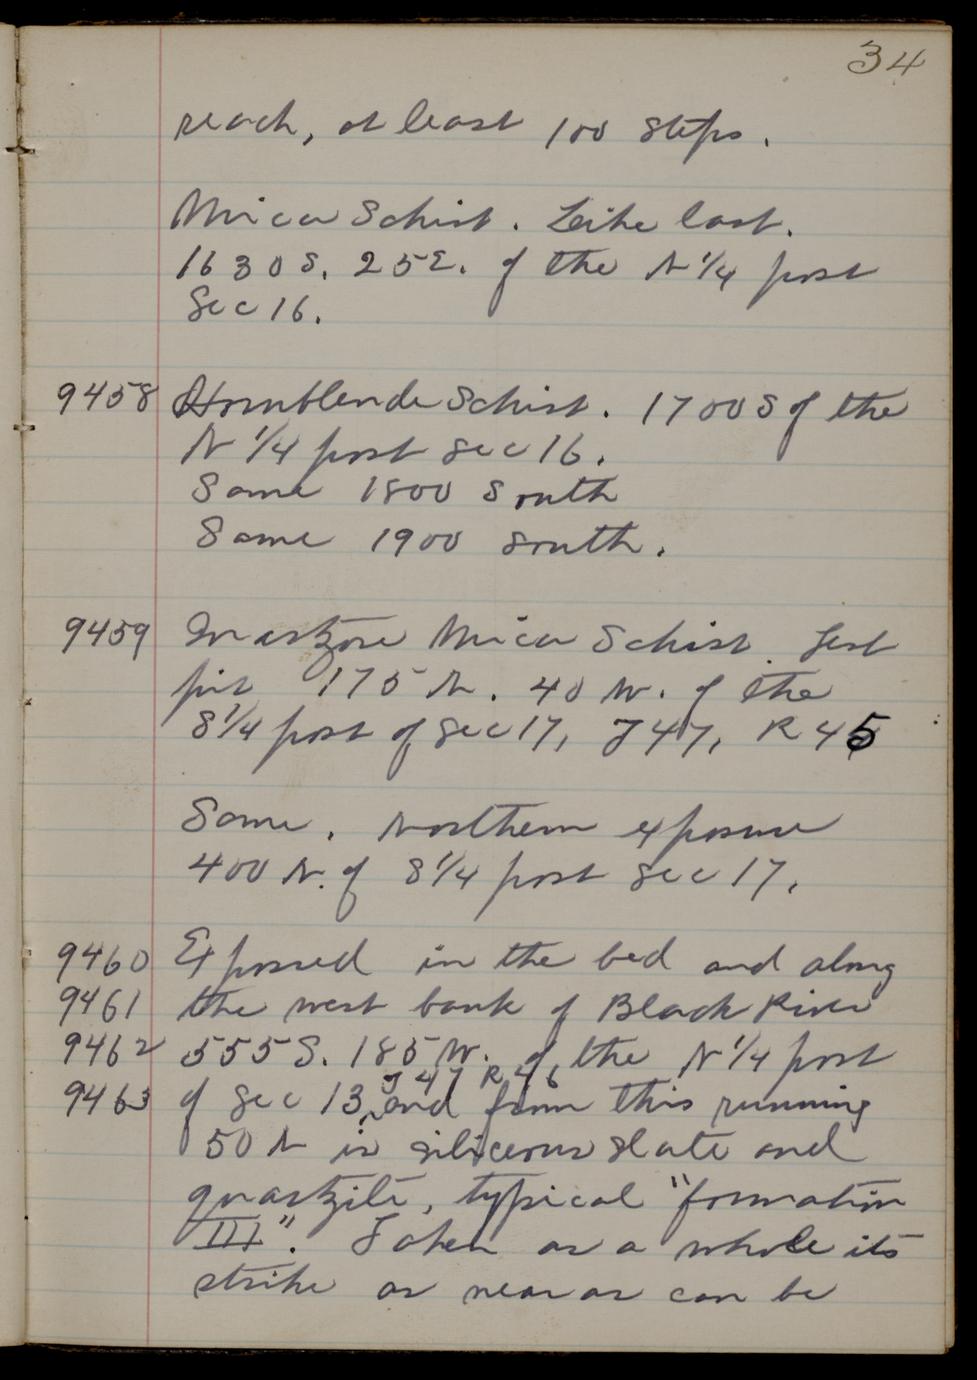 34
reach, at least 100 steps.
Mica Schist. Like last.
1630 S. 25 E. of the N 1/4 post
Sec 16.
9458 Hornblende Schist. 1700 S of the
N 1/4 post Sec 16.
Same 1800 South
Same 1900 South.
9459 Quartzose Mica Schist. Test
pit 175 N. 40 W. of the
S 1/4 post of Sec 17, T 47, R 45
Same. Northern exposure
400 N. of S 1/4 post Sec 17.
9460 Exposed in the bed and along
9461 the west bank of Black River
9462 555 S. 185 W. of the N 1/4 post
T 47 R 46
9463 of Sec 13, and from this running
50 N is siliceous slate and
quartzite, typical "formation
III". Taken as a whole its
strike as near as can be